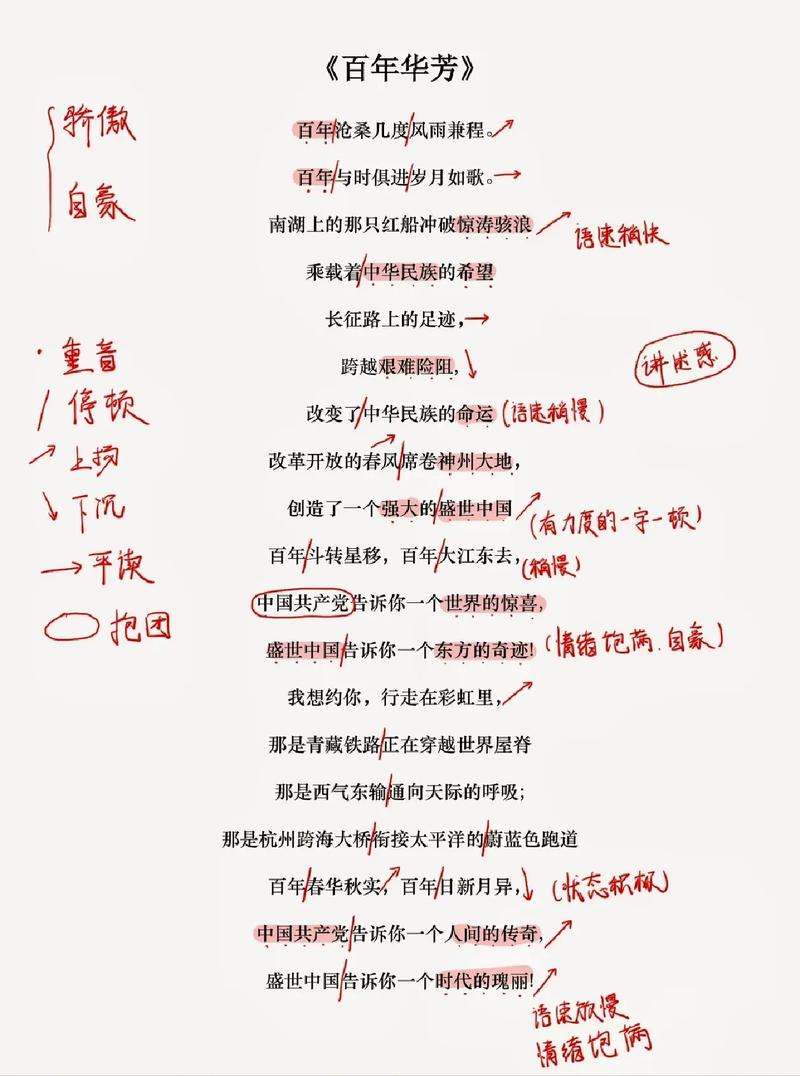 《百年华芳》
骄傲
自豪
百年沧桑几度风雨兼程。
百年与时俱进岁月如歌。
南湖上的那只红船冲破惊涛骇浪
语速稍快
乘载着中华民族的希望
长征路上的足迹，
重音
跨越艰难险阻，
讲述感
停顿
改变了中华民族的命运(语速稍慢)
上扬
改革开放的春风席卷神州大地，
下沉
创造了一个强大的盛世中国
(有力度的一字一顿)
平读
百年斗转星移，百年大江东去，(稍慢)
抱团
中国共产党告诉你一个世界的惊喜，
盛世中国告诉你一个东方的奇迹!(情绪饱满.自豪)
我想约你，行走在彩虹里，
那是青藏铁路正在穿越世界屋脊
那是西气东输通向天际的呼吸;
那是杭州跨海大桥衔接太平洋的蔚蓝色跑道
百年春华秋实，百年日新月异，(状态积极)
中国共产党告诉你一个人间的传奇，
盛世中国告诉你一个时代的瑰丽!
语速放慢
情绪饱满